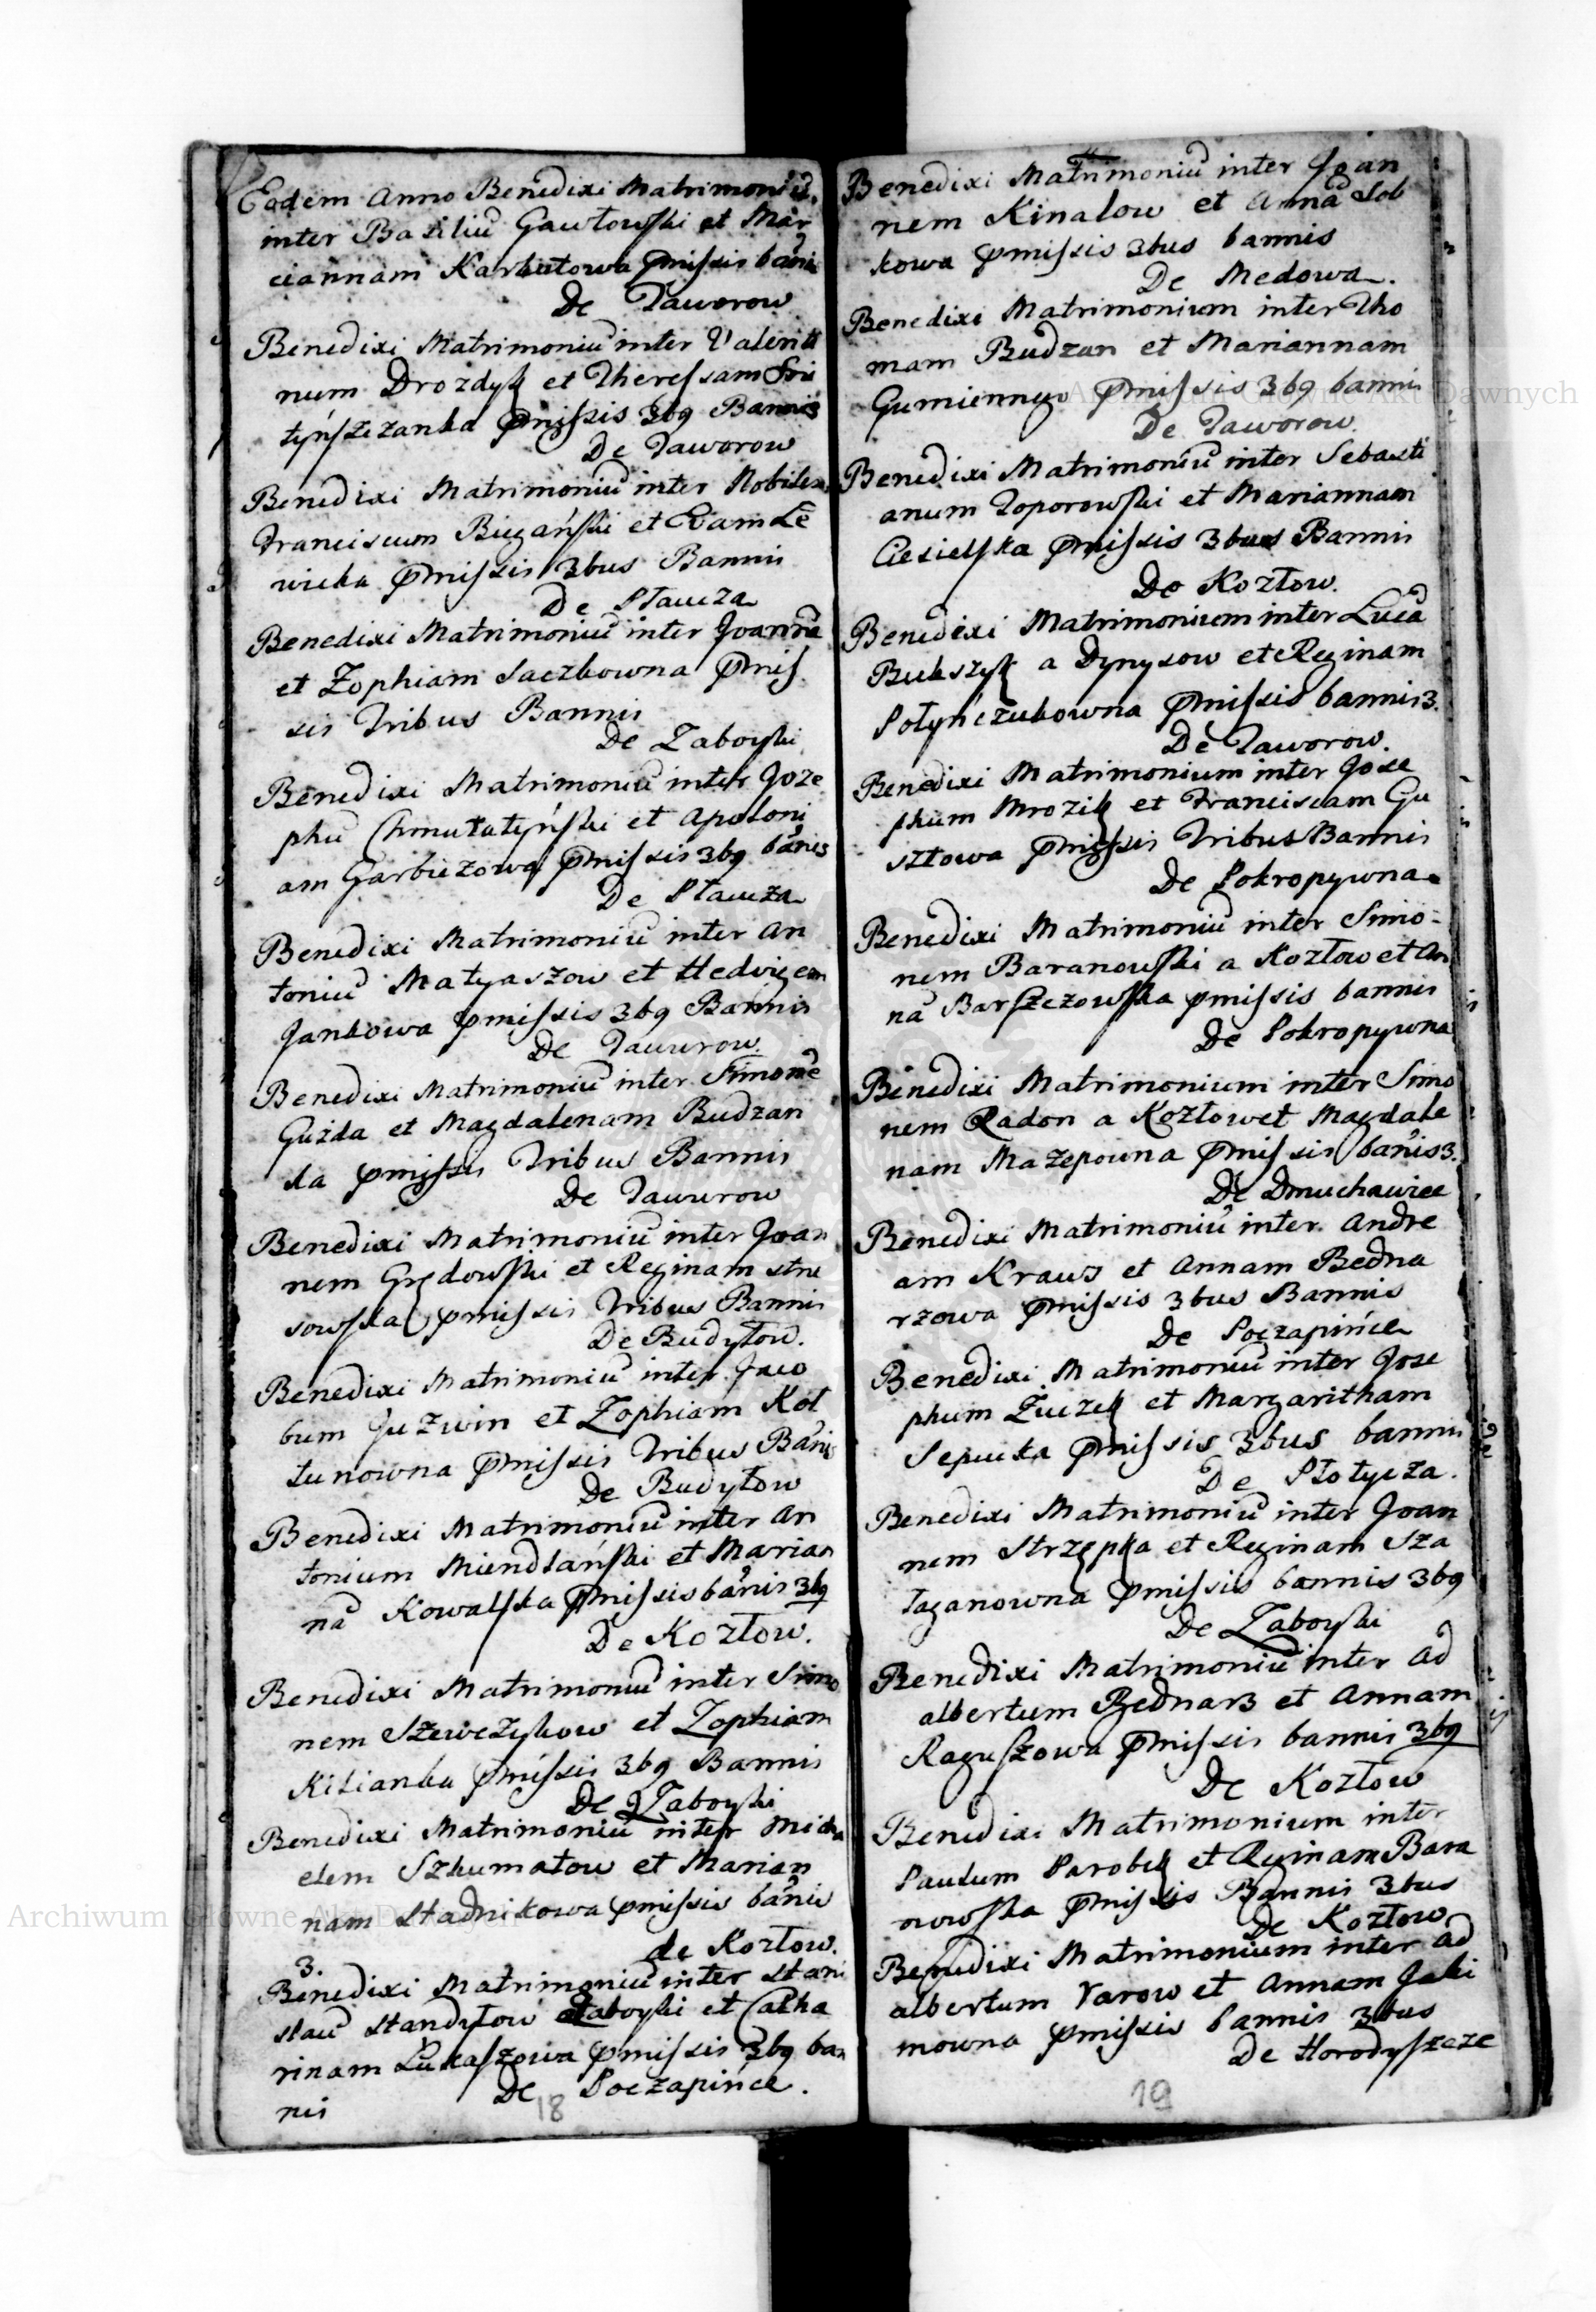 Eodem Anno Benedixi Matrimoniū
inter Basiliū Gawłowski et Mar
ciannam Karbutowa pmissis banis
De Taworow
Benedixi Matrimoniū inter Valenti
num Drozdyk et Theressam
pmissis 3b9 Bannis
De Taworow
Benedixi Matrimoniū inter Nobilem
Franciscum Biegański et Evam Le
wicka pmissis 3bus Bannis
De Pławcza
Benedixi Matrimoniū inter Joannē
et Zophiam Saczkowna pmis
sis Tribus Bannis
De Zaboyki
Benedixi Matrimoniū inter Joze
phū Chmutatyński et Apoloni
am Garbiezowa pmissis 3b9 banis
De Pławcza
Benedixi Matrimoniū inter An
toniū Matyaszow et Hedvigem
Jankowa pmissis 3b9 Bannis
De Tawurow
Benedixi Matrimoniū inter Simonē
Guzda et Magdalenam Budzan
ka pmissis Tribus Bannis
De Tawurow
Benedixi Matrimoniū inter Joan
nem Grędowski et Reginam Stru
sowska pmissis Tribus Bannis
De Budyłow.
Benedixi Matrimoniū inter Jaco
bum Juzwin et Zophiam Koł
tunowna pmissis Tribus Banis
De Budyłow
Benedixi Matrimoniū inter An
tonium Miendlański et Marian
nā Kowalska pmissis banis 3b9
De Kozłow.
Benedixi Matrimoniū inter Simo
nem Szewczykow et Zophiam
Kilianka pmissis 3b9 Bannis
De Zaboyki
Benedixi Matrimoniū inter Micha
elem Szkumatow et Marian
nam Stadnikowa pmissis banis
3. de Kozłow.
Benedixi Matrimoniū inter Stani
slaū Standyłow a Zaboyki et Catha
rinam Łukaszowa pmissis 3b9 ban
nis De Poczapińce.
18
Benedixi Matrimoniū inter Joan
nem Kinalow et Annā Sob
kowa pmissis 3bus bannis
De Medowa.
Benedixi Matrimonium inter Tho
mam Budzan et Mariannam
Gumiennyo pmissis 3b9 bannis
De Taworow.
Benedixi Matrimoniū inter Sebasti
anum Toporowski et Mariannam
Ciesielska pmissis 3bus Bannis
De Kozłow.
Benedixi Matrimonium inter Lucā
Bukszyk a Dynysow et Reginam
Połyńczukowna pmissis bannis 3.
De Taworow.
Benedixi Matrimonium inter Jose
phum Mrozik et Franciscam Gu
sztowa pmissis Tribus Bannis
De Pokropywna
Benedixi Matrimoniū inter Simo-
nem Baranowski a Kozłow et An
nā Barszczowska pmissis bannis
De Pokropywna
Benedixi Matrimonium inter Simo
nem Radon a Kozłow et Magdale
nam Mazepowna pmissis banis 3.
De Dmuchawice
Benedixi Matrimoniū inter Andre
am Kraws et Annam Bedna
rzowa pmissis 3bus Bannis
De Poczapińce
Benedixi Matrimoniū inter Jose
phum Zuczek et Margaritham
Sepucka pmissis 3bus bannis
De Płotycza.
Benedixi Matrimoniū inter Joan
nem Strzępka et Reginam Sza
łaganowna pmissis bannis 3b9
De Zaboyki
Benedixi Matrimoniū inter Ad
albertum Bednarz et Annam
Raguszowa pmissis bannis 3b9
De Kozłow
Benedixi Matrimonium inter
Paulum Parobek et Reginam Bara
nowska pmissis Bannis 3bus
De Kozłow
Benedixi Matrimonium inter Ad
albertum Yarow et Annam Jaki
mowna pmissis bannis 3bus
De Horodyszcze
19
Archiwum Główne Akt Dawnych
Archiwum Główne Akt Dawnych